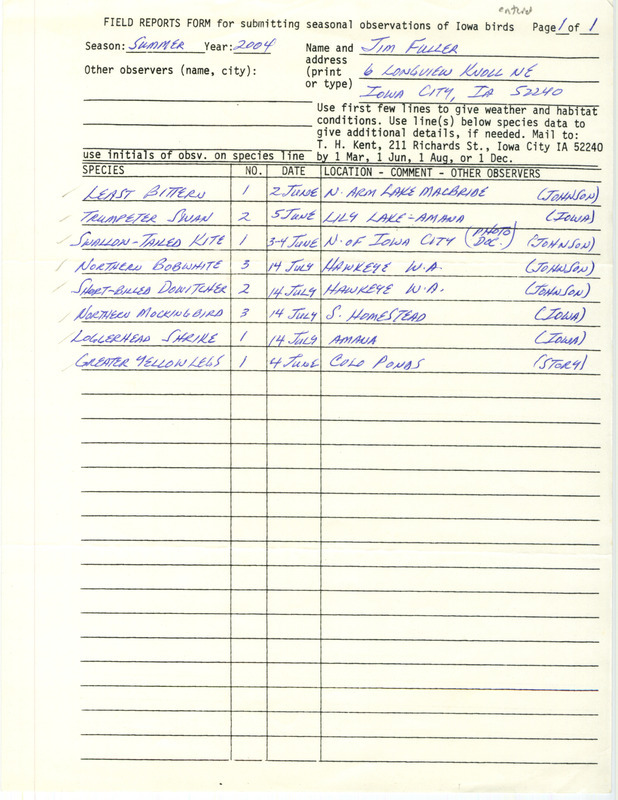 entered
FIELD REPORTS FORM for submitting seasonal observations of Iowa birds Page 1 of 1
Season: SUMMER Year: 2004 Name and JIM FULLER
address
Other observers (name, city): (print 6 LONGVIEW KNOLL NE
or type) IOWA CITY, IA 52240
Use first few lines to give weather and habitat
conditions. Use line(s) below species data to
give additional details, if needed. Mail to:
T. H. Kent, 211 Richards St., Iowa City IA 52240
use initials of obsv. on species line by 1 Mar, 1 Jun, 1 Aug, or 1 Dec.
SPECIES NO. DATE LOCATION - COMMENT - OTHER OBSERVERS
LEAST BITTERN 1 2 JUNE N. ARM LAKE MACBRIDE (JOHNSON)
TRUMPETER SWAN 2 5 JUNE LILY LAKE-AMANA (IOWA)
SWALLOW-TAILED KITE 1 3-4 JUNE N. OF IOWA CITY (PHOTO DOC.) (JOHNSON)
NORTHERN BOBWHITE 3 14 JULY HAWKEYE W.A. (JOHNSON)
SHORT-BILLED DOWITCHER 2 14 JULY HAWKEYE W.A. (JOHNSON)
NORTHERN MOCKINGBIRD 3 14 JULY S. HOMESTEAD (IOWA)
LOGGERHEAD SHRIKE 1 14 JULY AMANA (IOWA)
GREATER YELLOWLEGS 1 4 JUNE COLO PONDS (STORY)